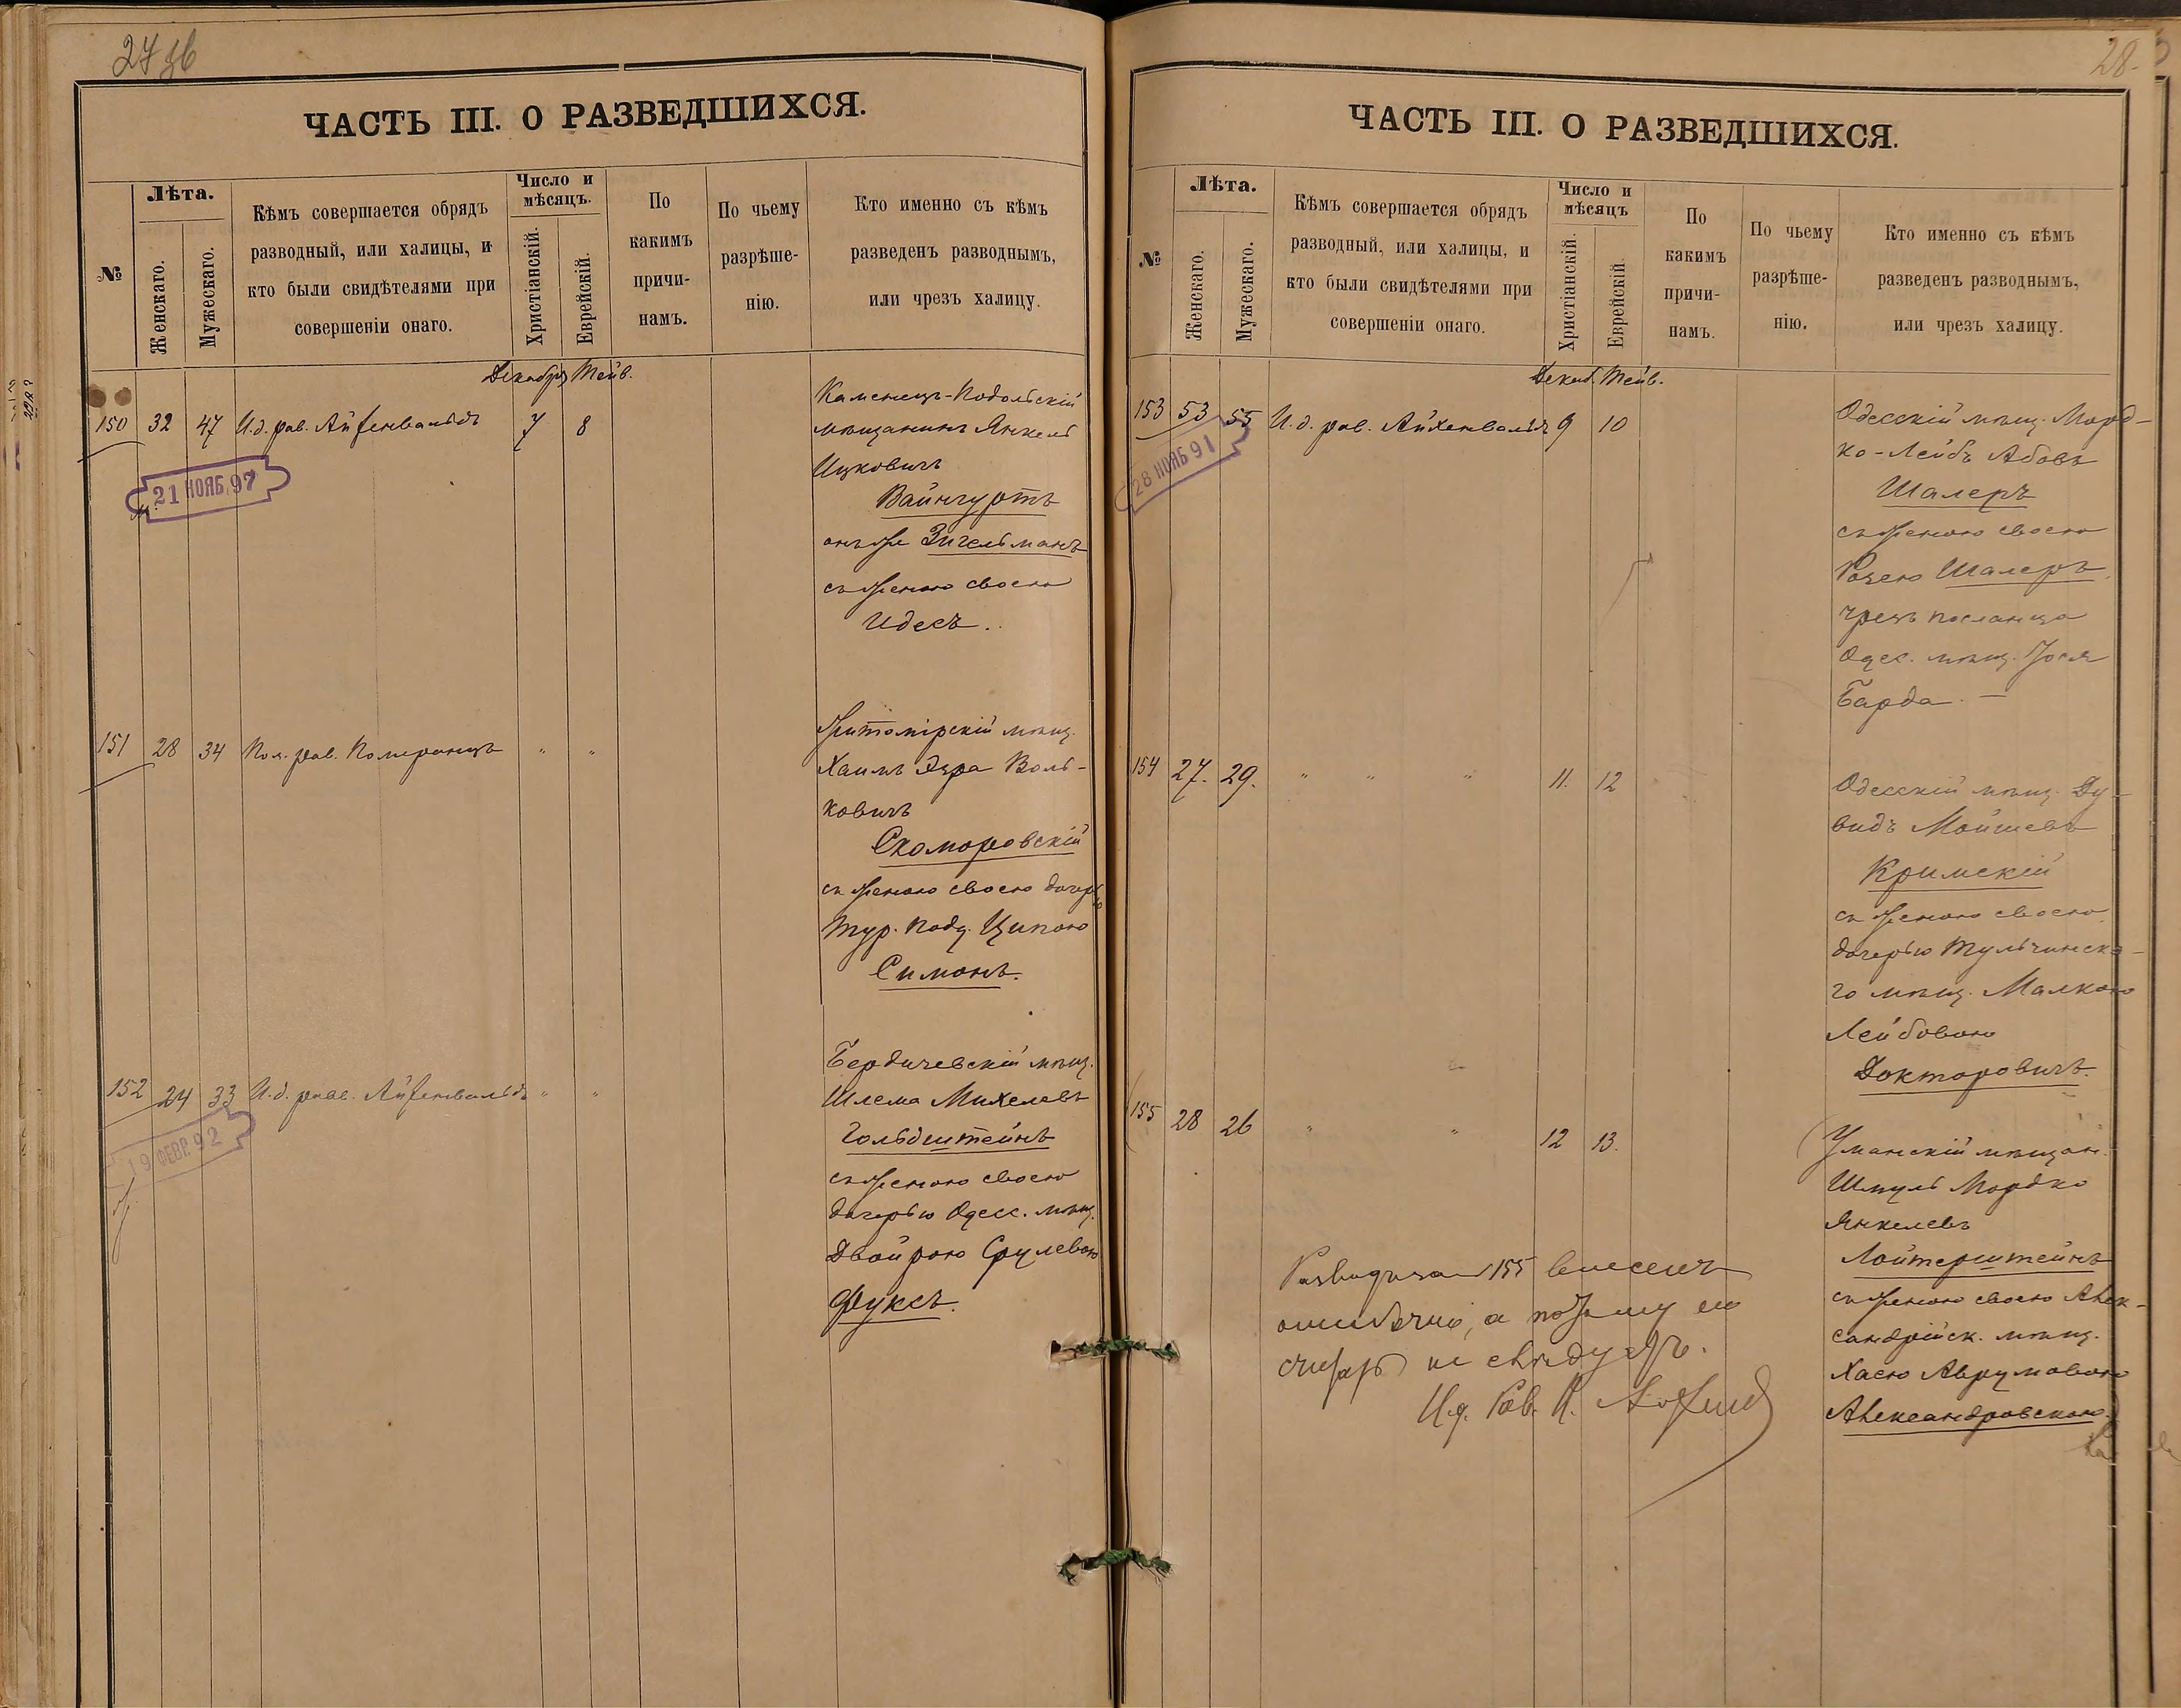 27
ЧАСТЬ III. О РАЗВЕДШИХСЯ.
№
Лѣта.
Женскаго.
Мужескаго.
Кѣмъ совершается обрядъ
разводный, или халицы, и
кто были свидѣтелями при
совершеніи онаго.
Число и
мѣсяцъ.
Христіанскій.
Еврейскій.
По
какимъ
причи-
намъ.
По чьему
разрѣше-
нію.
Кто именно съ кѣмъ
разведенъ разводнымъ,
или чрезъ халицу.
Декабрь Тейв.
150 32 47 И.д. рав. Айхенвальдъ 7 8
Каменецъ-Подольскій
мѣщанинъ Янкель
Ицковичъ
Вайнгуртъ
онъ же Зигельманъ
съ женою своею
Идесъ..
21 НОЯБ. 97
151 28 34 Пом. рав. Померанцъ " "
Житомірскій мѣщ.
Хаимъ Эзра Воль-
ковичъ
Скоморовскій
съ женою своею дочерью
Тур. Подд. Ципою
Симонъ.
152 24 33 И.д. равв. Айхенвальдъ " "
19 ФЕВР. 92
Бердичевскій мѣщ.
Шлема Михелевъ
Гольдштейнъ
съ женою своею
дочерью Одесс. мѣщ.
Двойрою Срулевою
Фуксъ.
28.
ЧАСТЬ III. О РАЗВЕДШИХСЯ.
№
Лѣта.
Женскаго.
Мужескаго.
Кѣмъ совершается обрядъ
разводный, или халицы, и
кто были свидѣтелями при
совершеніи онаго.
Число и
мѣсяцъ
Христіанскій.
Еврейскій.
По
какимъ
причи-
намъ.
По чьему
разрѣше-
нію.
Кто именно съ кѣмъ
разведенъ разводнымъ,
или чрезъ халицу.
Декаб. Тейв.
153 53 55 И.д. рав. Айхенвальдъ 9 10
28 НОЯБ 91
Одесскій мѣщ. Морд-
ко-Лейбъ Абовъ
Шалеръ
съ женою своею
Розею Шалеръ
чрезъ посланца
Одес. мѣщ. Іося
Барда. —
154 27. 29. " " " 11. 12
Одесскій мѣщ. Ду-
видъ Мойшевъ
Кримскій
съ женою своею
дочерью Тульчинска-
го мѣщ. Малкою
Лейбовою
Докторовичъ.
155 28 26 " " 12 13.
Уманскій мѣщан.
Шмуль Мордко
Янкелевъ
Лойтерштейнъ
съ женою своею Алек-
сандрійск. мѣщ.
Хасею Аврумовою
Александровскою.
155 внесенъ
ошибочно, а потому его
считать не слѣдуетъ.
И.д. Рав.